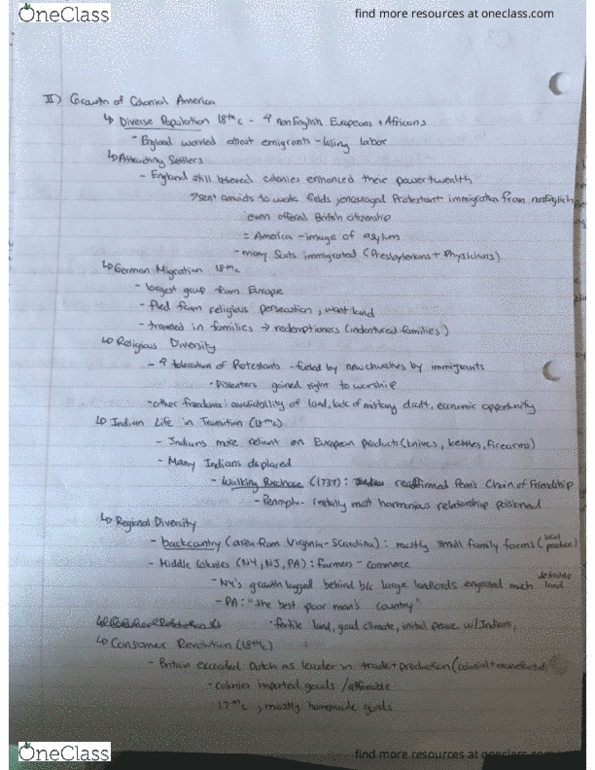 OneClass
find more resources at oneclass.com
II) Growth of Colonial America
↳ Diverse Population 18th c - ↑ nonEnglish Europeans + Africans
- England worried about emigrants - losing labor
↳ Attracting Settlers
- England still believed colonies enhanced their power + wealth
→ sent convicts to work fields, encouraged Protestant immigration from nonEnglish
even offered British citizenship
= America - image of asylum
- many Scots immigrated (Presbyterians + Physicians)
↳ German Migration 18th c
- largest group from Europe
- fled from religious persecution, want land
- traveled in families → redemptioners (indentured families)
↳ Religious Diversity
- ↑ toleration of Protestants - fueled by new churches by immigrants
· Dissenters gained right to worship
· other freedoms: availability of land, lack of military draft, economic opportunity
↳ Indian Life in Transition (18th c)
- Indians more reliant on European products (knives, kettles, firearms)
- Many Indians displaced
- Walking Purchase (1737): reaffirmed Penn's Chain of Friendship
- Pennsylv- initially most harmonious relationship poisoned
↳ Regional Diversity
- backcountry (area from Virginia - S Carolina): mostly small family farms (local produce)
- Middle Colonies (NY, NJ, PA): farmers - commerce
- NY's growth lagged behind b/c large landlords engrossed much desirable land
- PA: "the best poor man's country"
· fertile land, good climate, initial peace w/ Indians,
↳ Consumer Revolution (18th c)
- Britain exceeded Dutch as leader in trade + production (colonial + manufactured)
· colonies imported goods / affordable
17th c, mostly homemade goods
OneClass
find more resources at oneclass.com